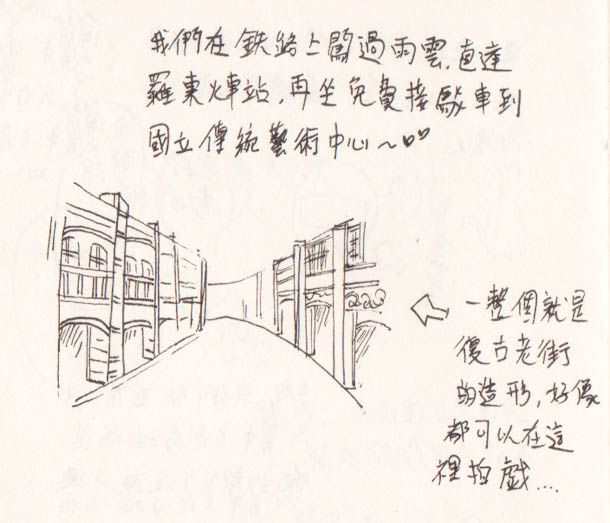 我們在鉄路上闖過雨雲,直達
羅東火車站,再坐免費接駁車到
國立傳統藝術中心~♡♡
一整個就是
復古老街
的造形,好像
都可以在這
裡拍戲...